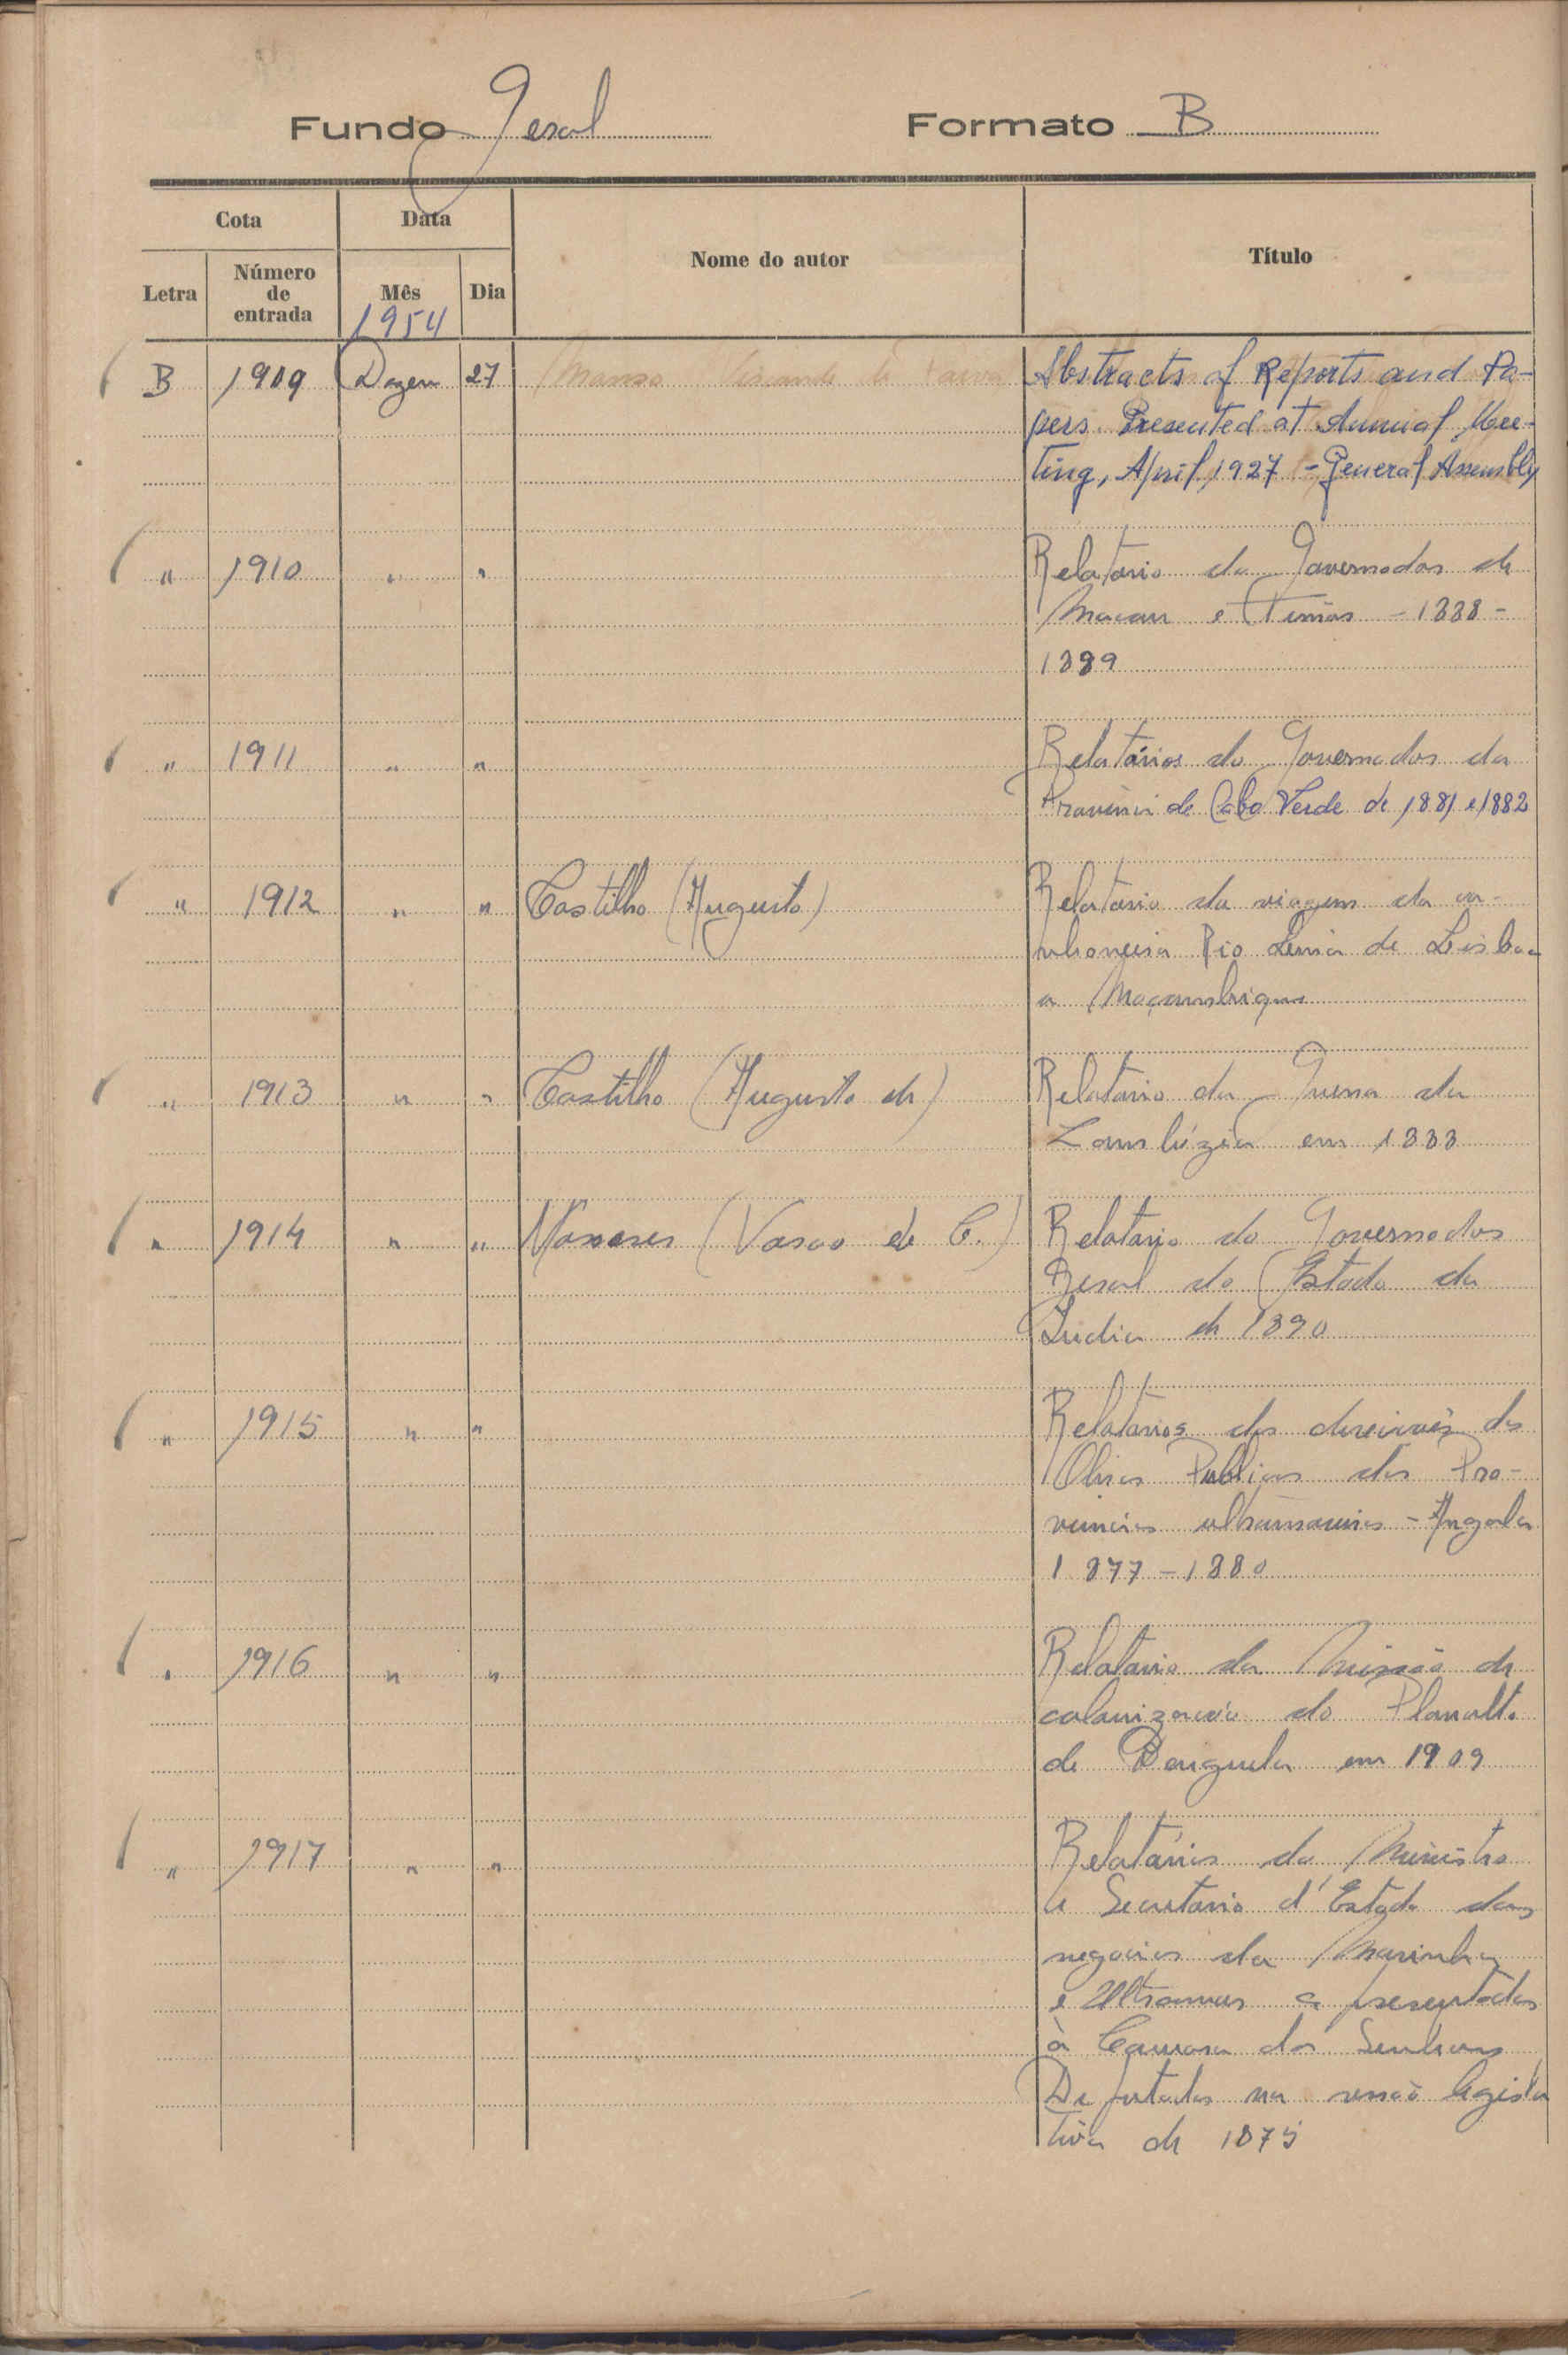 Fundo Geral Formato B
Cota Data Nome do autor Título
Letra Número de entrada Mês Dia
1954
B 1909 Dezem 27 Abstracts of Reports and Pa-
pers Presented at Annual Mee-
ting, April 1927 - General Assembly
" 1910 " " Relatorio do Governador de
Macau e Timor - 1888 -
1889
" 1911 " " Relatórios do Governador da
Provincia de Cabo Verde de 1881 e 1882
" 1912 " " Castilho (Augusto) Relatorio da viagem da ca-
nhoneira Rio Lima de Lisboa
a Moçambique
" 1913 " " Castilho (Augusto de) Relatorio da Guerra da
Zambézia em 1888
" 1914 " " (Vasco de C.) Relatorio do Governador
Geral do Estado da
India de 1890
" 1915 " " Relatorios das direcções das
Obras Publicas das Pro-
vincias ultramarinas - Angola
1877 - 1880
" 1916 " " Relatorio da Missão de
colonização do Planalto
de Benguela em 1909
" 1917 " " Relatórios do Ministro
e Secretario d'Estado dos
negocios da Marinha
e Ultramar apresentados
à Camara dos Senhores
Deputados na sessão legisla
tiva de 1875